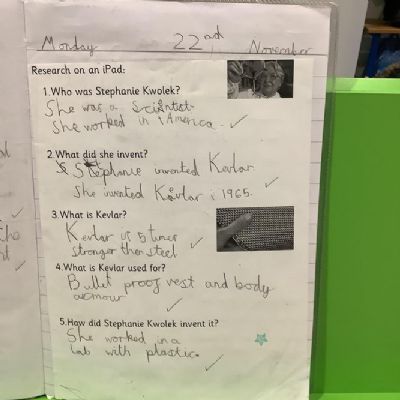 Monday 22nd November
Research on an iPad:
1.Who was Stephanie Kwolek?
She was a Scientist.
She worked in America.
2.What did she invent?
Stephanie invented Kevlar
She invented Kevlar i 1965.
3.What is Kevlar?
Kevlar is 5 times
stronger then steel
4.What is Kevlar used for?
Bullet proof vest and body
armour
5.How did Stephanie Kwolek invent it?
She worked in a
lab with plastic.